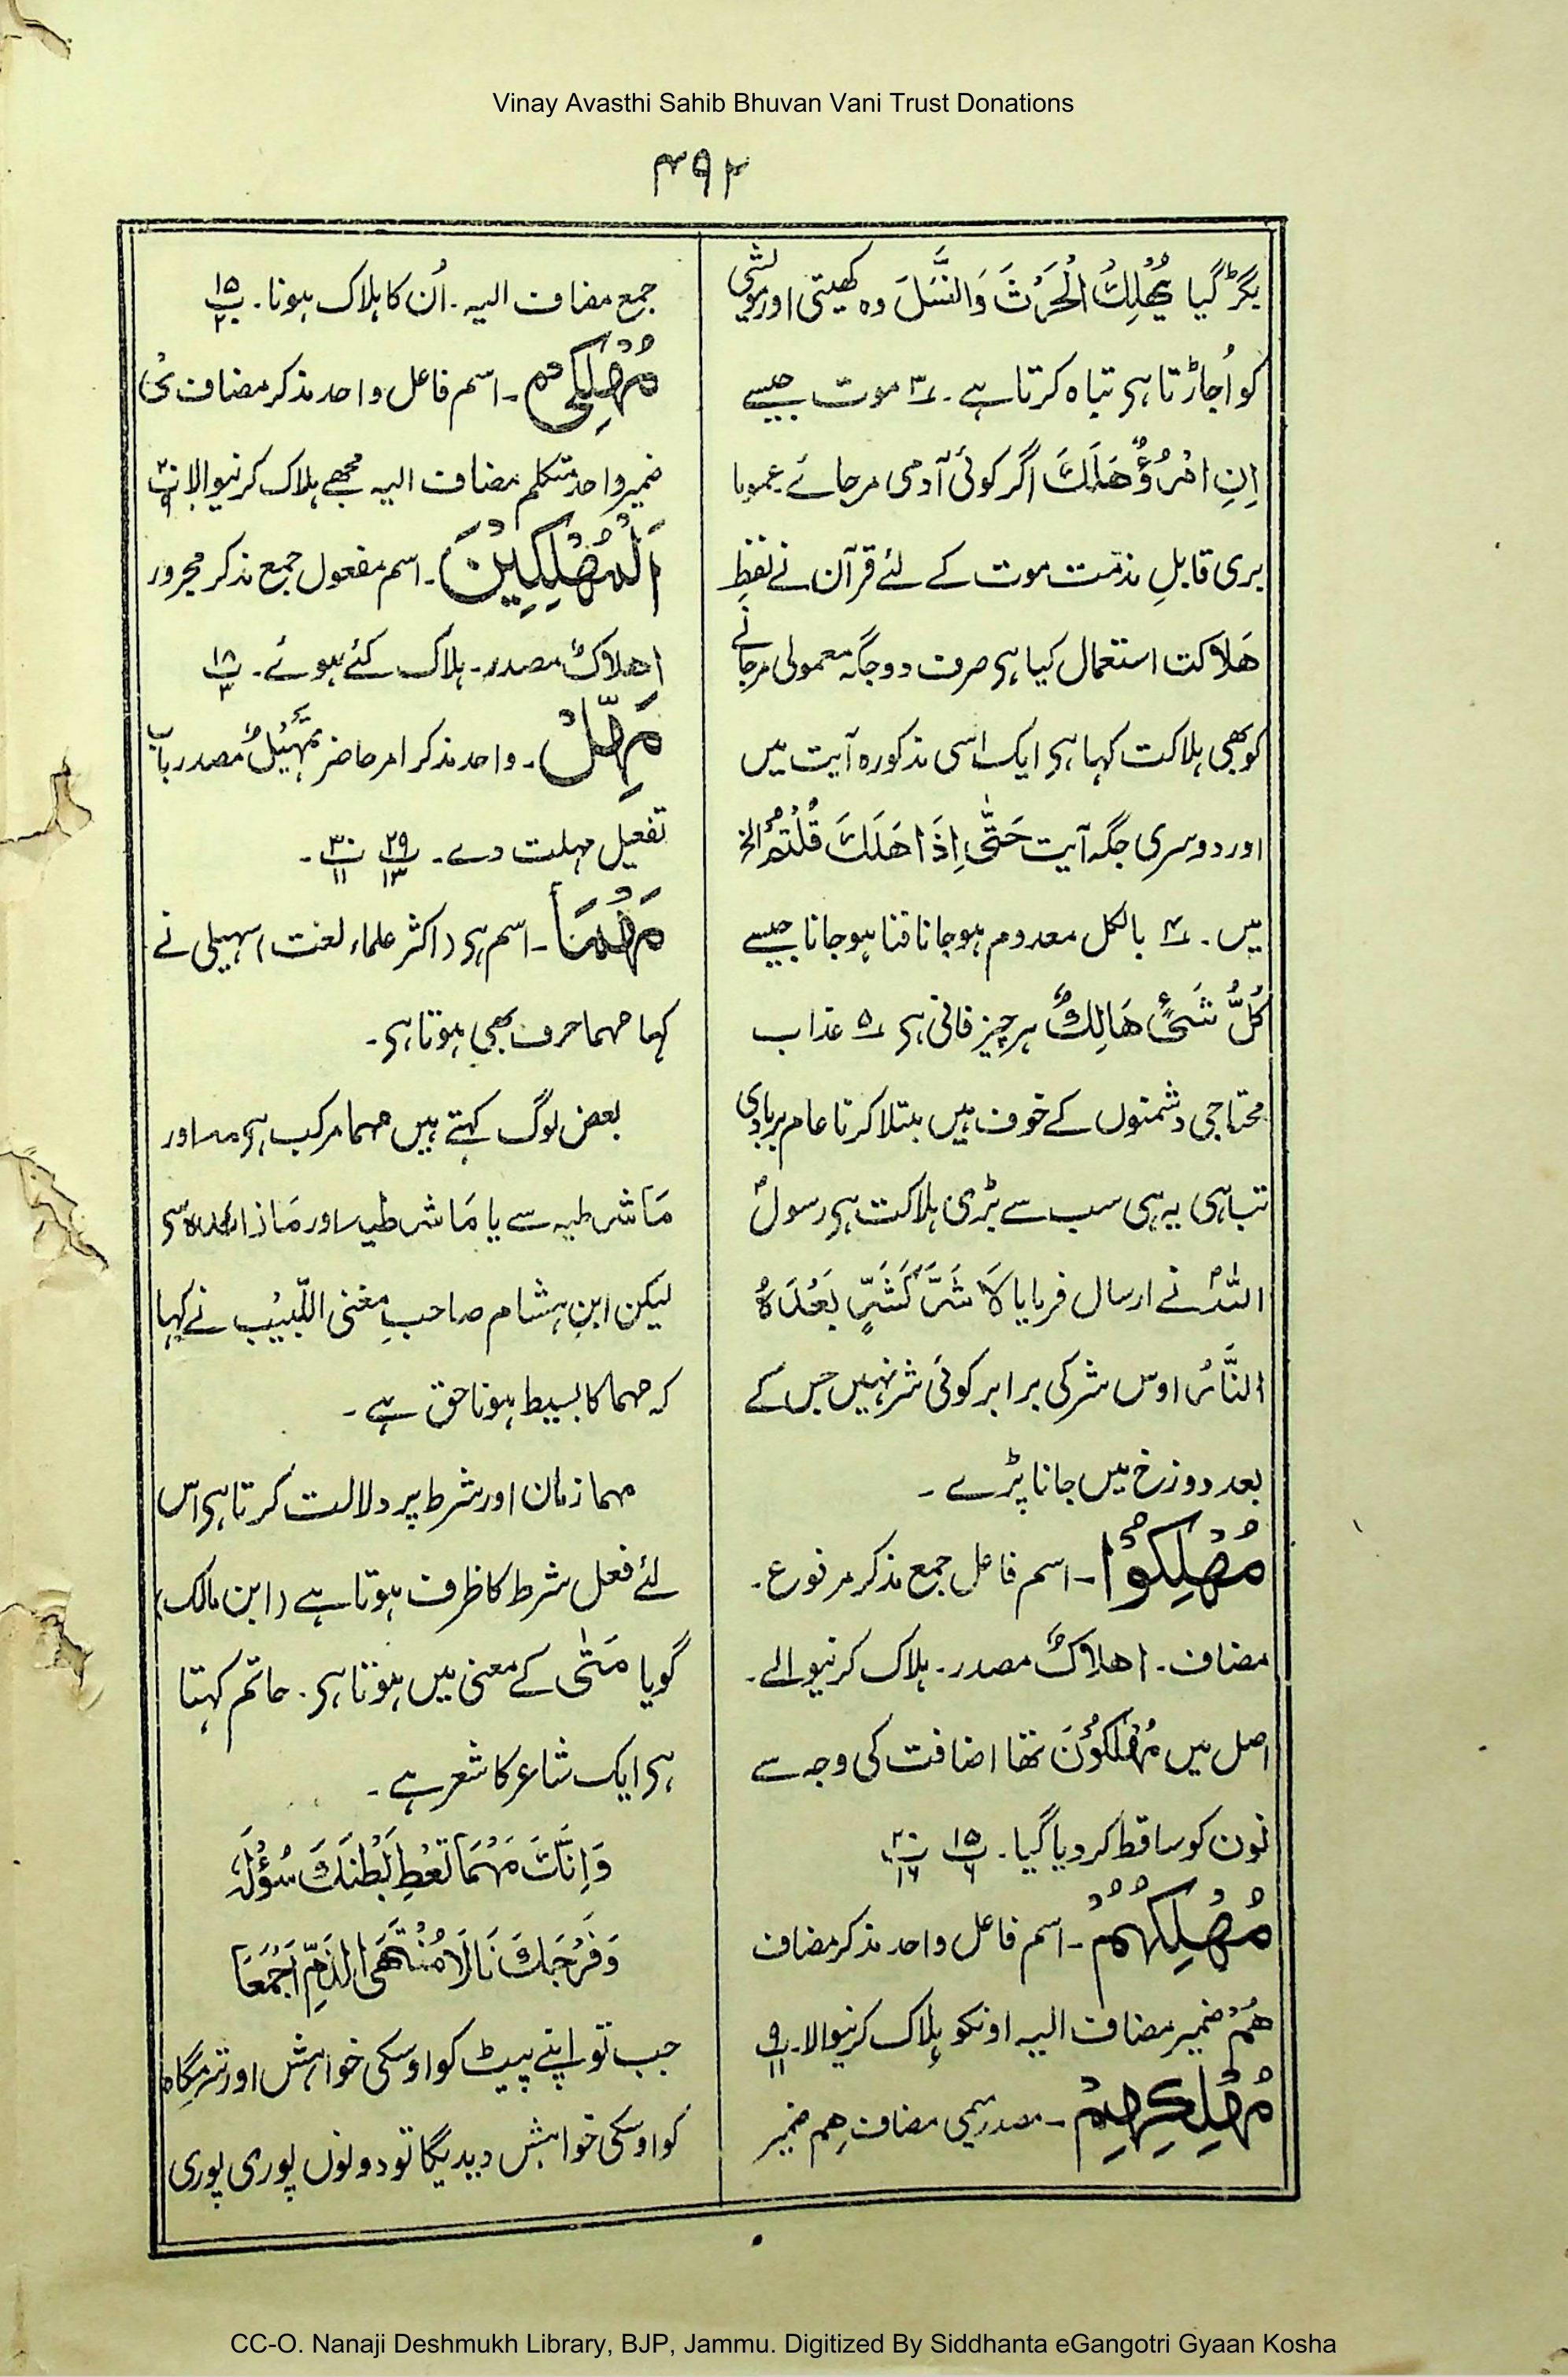 Vinay Avasthi Sahib Bhuvan Vani Trust Donations
۳۹۲
بگڑ گیا یُہْلِکُ الْحَرْثَ وَالنَّسْلَ وہ کھیتی اور مویشی
کو اُجاڑتا ہی تباہ کرتا ہے۔ ۳ موت جیسے
اِنِ امْرُؤٌ هَلَكَ اگر کوئی آدمی مرجائے عموما
بری قابلِ مذمت موت کے لئے قرآن نے لفظِ
هَلاکت استعمال کیا ہی صرف دو جگہ معمولی مرجانے
کو بھی ہلاکت کہا ہی ایک اسی مذکورہ آیت میں
اور دوسری جگہ آیت حَتّٰی اِذَا هَلَكَ قُلْتُمْ الخ
میں۔ ۴ بالکل معدوم ہوجانا فنا ہوجانا جیسے
کُلُّ شَیْءٍ هَالِكٌ ہر چیز فانی ہی ۵ عذاب
محتاجی دشمنوں کے خوف میں مبتلا کرنا عام بربادی
تباہی یہ ہی سب سے بڑی ہلاکت ہی رسولؐ
اللہؐ نے ارسال فرمایا لَا شَرَّ کَشَرٍّ بَعْدَہُ
النَّارُ اوس شر کی برابر کوئی شر نہیں جس کے
بعد دوزخ میں جانا پڑے۔
مُهْلِكُوْا۔ اسم فاعل جمع مذکر مرفوع۔
مضاف۔ اهلاكٌ مصدر۔ ہلاک کرنیوالے۔
اصل میں مُهْلِكُوْنَ تھا اضافت کی وجہ سے
نون کو ساقط کردیا گیا۔ پ۱۵ ۶ پ۲۰ ۱۶
مُهْلِكُهُمْ۔ اسم فاعل واحد مذکر مضاف
هُمْ ضمیر مضاف الیہ اونکو ہلاک کرنیوالا۔ پ۹ ۱۱
مُهْلِكِهِمْ۔ مصدر میمی مضاف هِم ضمیر
جمع مضاف الیہ۔ اُن کا ہلاک ہونا۔ پ۱۵ ۲۰
مُهْلِكِیَ۔ اسم فاعل واحد مذکر مضاف ی
ضمیر واحد متکلم مضاف الیہ مجھے ہلاک کرنیوالا
اَلْمُهْلَكِیْنَ۔ اسم مفعول جمع مذکر مجرور
اهلاكٌ مصدر۔ ہلاک کئے ہوئے۔ پ۱۸ ۳
مَهِّلْ۔ واحد مذکر امر حاضر تَمْهِیْلٌ مصدر باب
تفعیل مہلت دے۔ پ۲۹ ۱۳ پ۳۰ ۱۱۔
مَهْمَا۔ اسم ہی (اکثر علماء لغت) سہیلی نے
کہا مہما حرف بھی ہوتا ہی۔
بعض لوگ کہتے ہیں مہما مرکب ہی مہ اور
مَا شرطیہ سے یا مَا شرطیہ اور مَا زائدہ سی
لیکن ابنِ ہشام صاحبِ مغنی اللّبیب نے کہا
کہ مہما کا بسیط ہونا حق ہے۔
مہما زمان اور شرط پر دلالت کرتا ہی اس
لئے فعل شرط کا ظرف ہوتا ہے (ابن مالک)
گویا مَتٰی کے معنی میں ہوتا ہی۔ حاتم کہتا
ہی ایک شاعر کا شعر ہے۔
وَاِنَّكَ مَهْمَا تُعْطِ بَطْنَكَ سُؤْلَهُ
وَفَرْجَكَ نَالَا مُنْتَهَى الذَّمِّ اَجْمَعَا
جب تو اپنے پیٹ کو اوسکی خواہش اور شرمگاہ
کو اوسکی خواہش دیدیگا تو دونوں پوری پوری
CC-O. Nanaji Deshmukh Library, BJP, Jammu. Digitized By Siddhanta eGangotri Gyaan Kosha